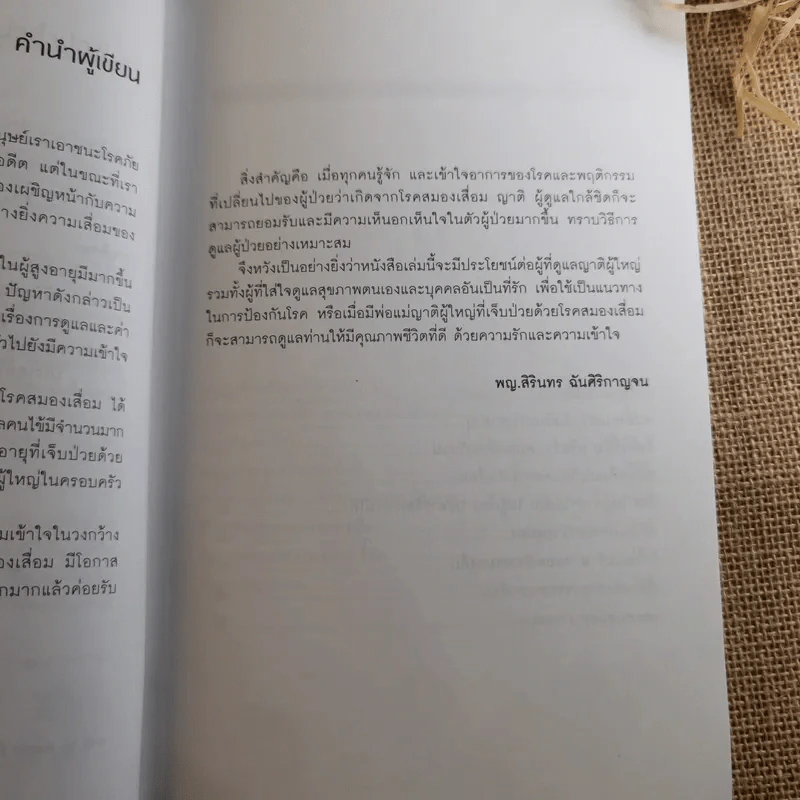 คำนำผู้เขียน
นุษย์เราเอาชนะโรคภัย
อดีต แต่ในขณะที่เรา
องเผชิญหน้ากับความ
างยิ่งความเสื่อมของ
ในผู้สูงอายุมีมากขึ้น
ปัญหาดังกล่าวเป็น
เรื่องการดูแลและค่า
ัวไปยังมีความเข้าใจ
โรคสมองเสื่อม ได้
ลคนไข้มีจำนวนมาก
อายุที่เจ็บป่วยด้วย
ผู้ใหญ่ในครอบครัว
มเข้าใจในวงกว้าง
องเสื่อม มีโอกาส
กมากแล้วค่อยรับ
สิ่งสำคัญคือ เมื่อทุกคนรู้จัก และเข้าใจอาการของโรคและพฤติกรรม
ที่เปลี่ยนไปของผู้ป่วยว่าเกิดจากโรคสมองเสื่อม ญาติ ผู้ดูแลใกล้ชิดก็จะ
สามารถยอมรับและมีความเห็นอกเห็นใจในตัวผู้ป่วยมากขึ้น ทราบวิธีการ
ดูแลผู้ป่วยอย่างเหมาะสม
จึงหวังเป็นอย่างยิ่งว่าหนังสือเล่มนี้จะมีประโยชน์ต่อผู้ที่ดูแลญาติผู้ใหญ่
รวมทั้งผู้ที่ใส่ใจดูแลสุขภาพตนเองและบุคคลอันเป็นที่รัก เพื่อใช้เป็นแนวทาง
ในการป้องกันโรค หรือเมื่อมีพ่อแม่ญาติผู้ใหญ่ที่เจ็บป่วยด้วยโรคสมองเสื่อม
ก็จะสามารถดูแลท่านให้มีคุณภาพชีวิตที่ดี ด้วยความรักและความเข้าใจ
พญ.สิรินทร ฉันศิริกาญจน